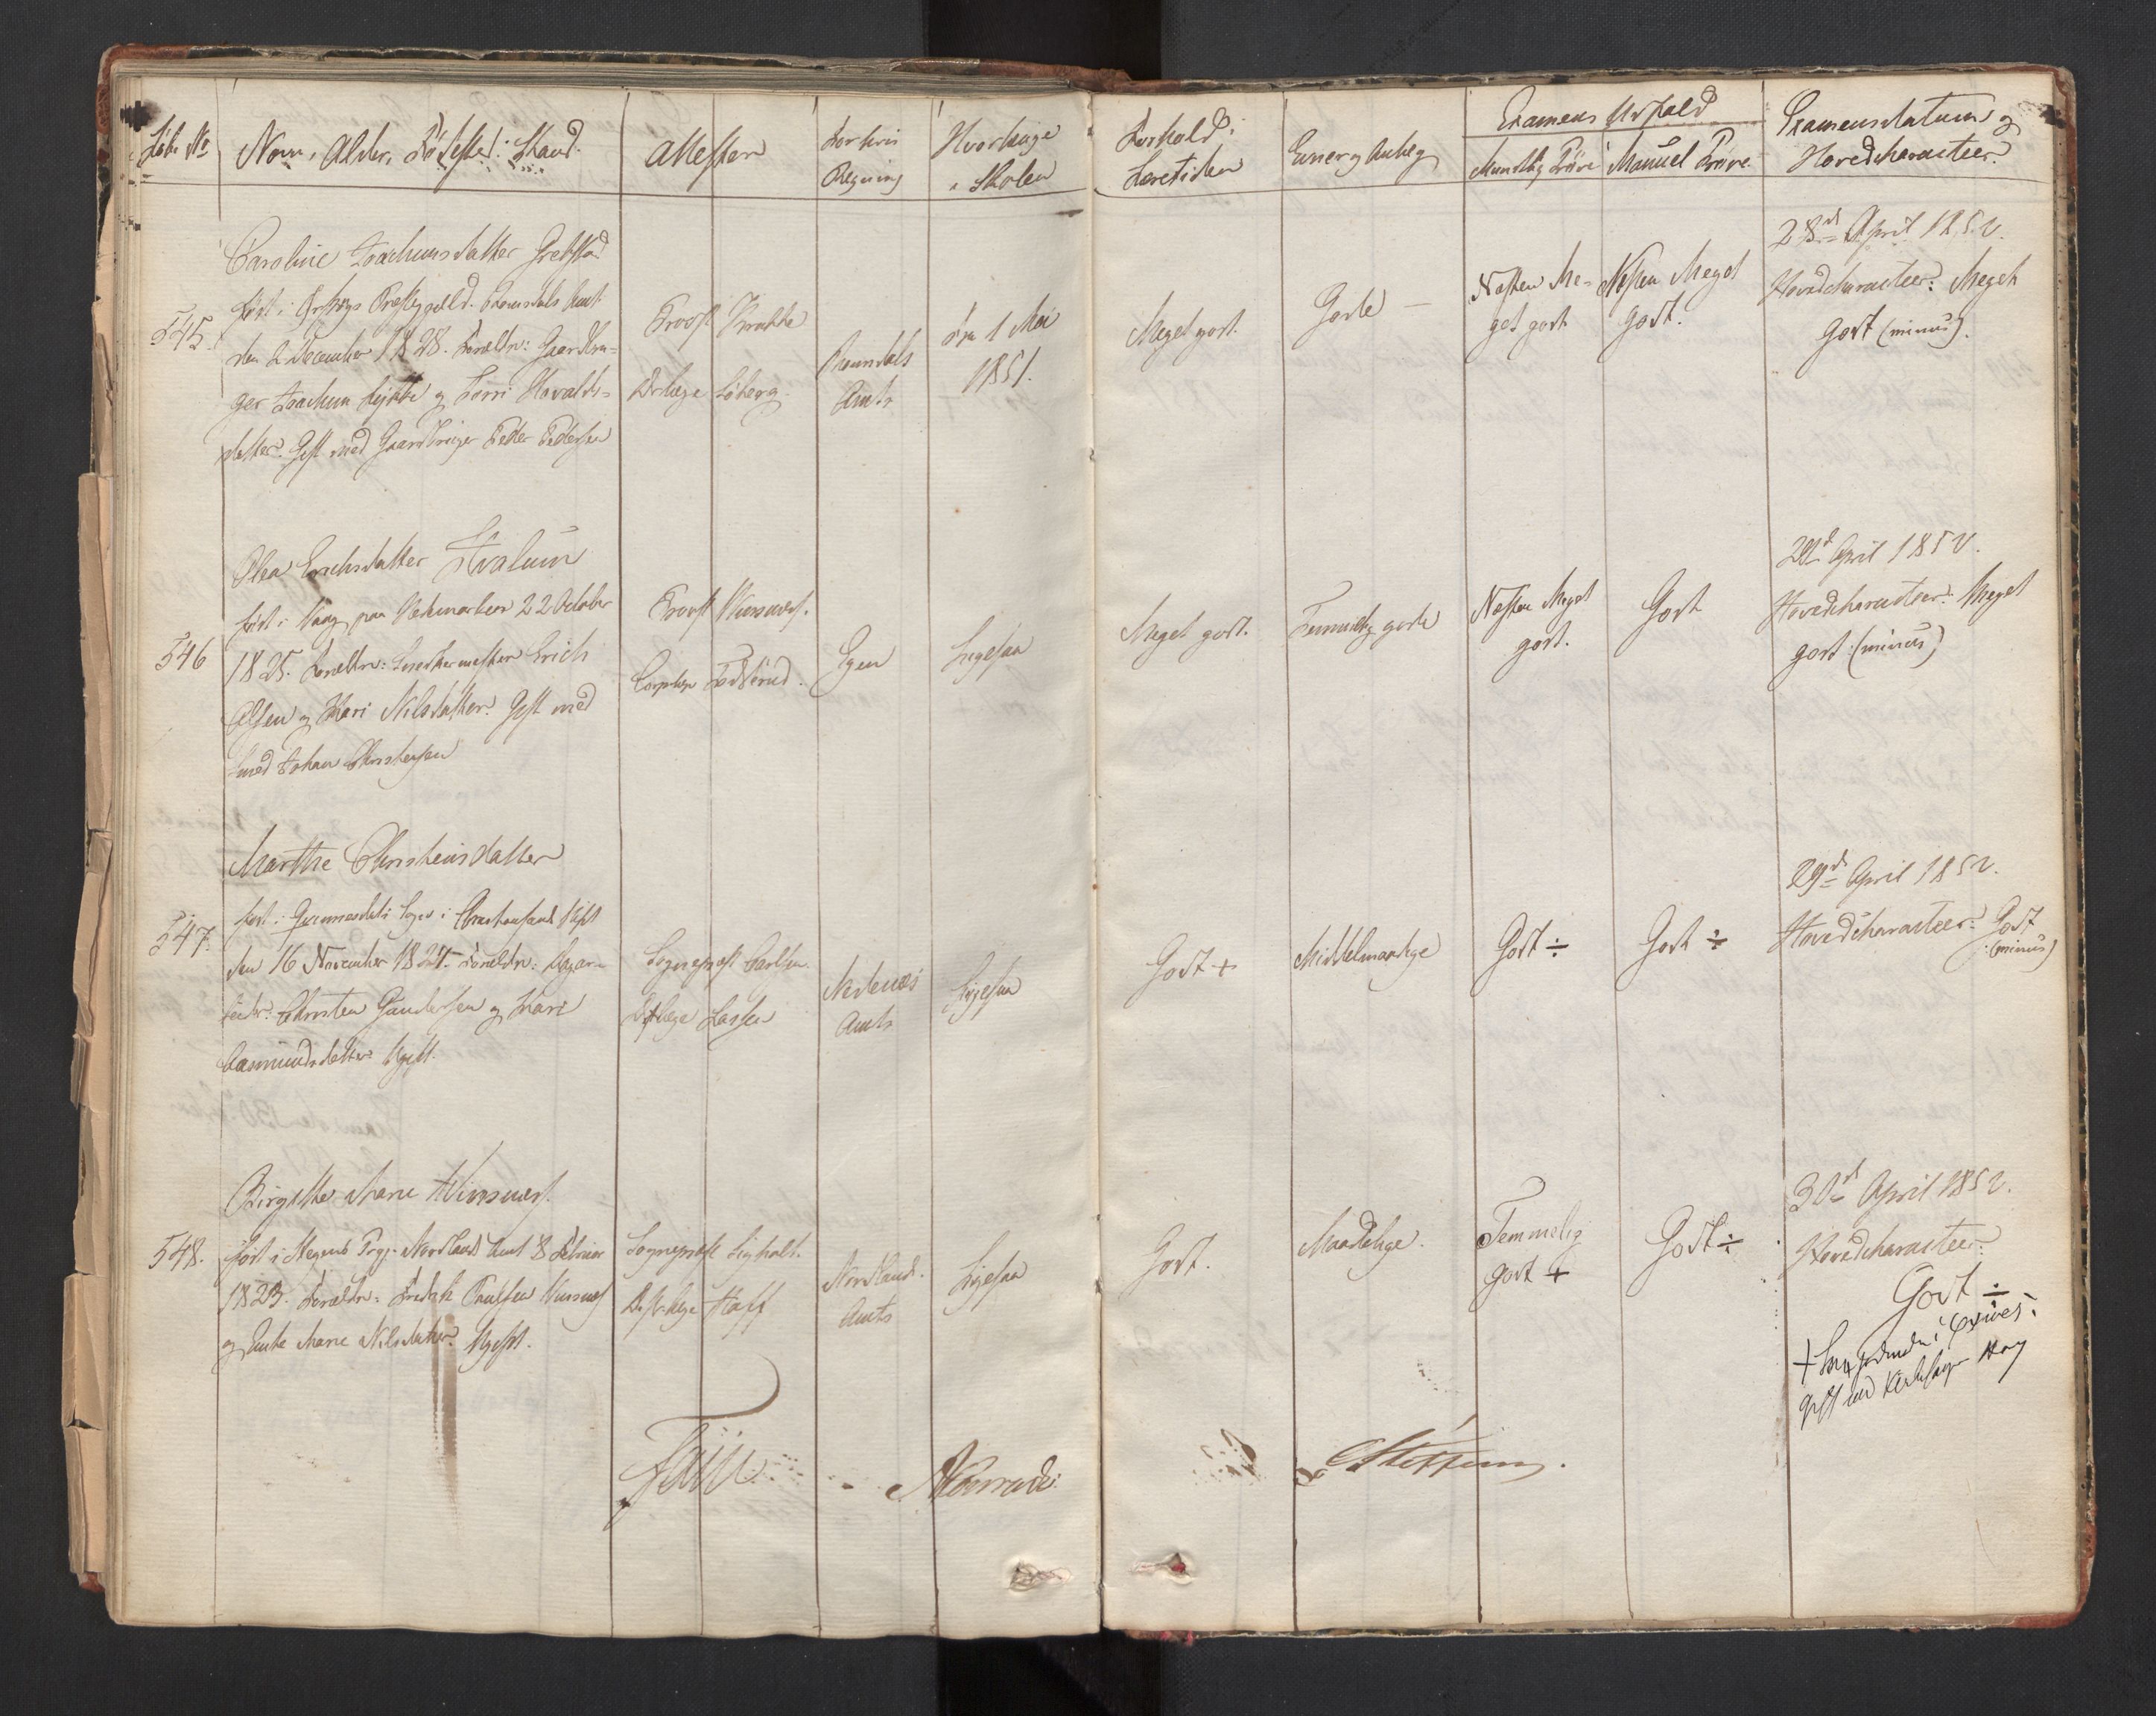 Løbe No
Navn, Alder, Fødested. Stand.
Attester
For hvis
Regning
Hvorlænge
i Skolen
Forhold i
Læretiden
Evner og Anlæg
Examens Udfald
Mundtlig Prøve
Manuel Prøve
Examensdatum og
Hovedcharacteer.
545.
Caroline Joachimsdatter
født i Præstegjeld. Romsdals Amt
den 2 December 1828. Forældre: Gaardbru-
ger Joachim og
datter. Gift med Gaardbruger Peder Pedersen
Provst
Romsdals
Amts
fra 1 Mai
1851.
Meget godt.
Gode —
Næsten Me-
get godt
Næsten Meget
godt.
28d April 1852.
Hovedcharacteer: Meget
godt (minus).
546
Olea Erichsdatter Hvalum
født i Vang paa Hedemarken 22 October
1825. Forældre: Erich
Olsen og Kari Nilsdatter. Gift med
Smed Johan Christensen
Provst Winsnes.
Egen
Ligesaa
Meget godt.
Temmelig gode
Næsten Meget
godt.
Godt
April 1852.
Hovedcharacteer: Meget
godt (minus)
547.
Marthe Christensdatter
født i Sogn i Christiansands Stift
den 16 November 1827. Forældre:
Christen Gundersen og Kari
Aasmundsdatter. Ugift.
Sognepræst Carlsen.
Nedenæs
Amts
Ligesaa
Godt +
Middelmaadige
Godt ÷
Godt ÷
29d April 1852.
Hovedcharacteer: Godt
(minus)
548.
Birgitte Marie Winsnes.
født i Stegens Prgj. Nordlands Amt 8 Februar
1823. Forældre: Fredrik Winsnes
og Marie Nilsdatter. Ugift.
Sognepræst
Nordlands
Amts
Ligesaa
Godt.
Maadelige.
Temmelig
godt +
Godt ÷
30d April 1852.
Hovedcharacteer:
Godt ÷
+
gift med Kirkesanger
Faye.
Conradi
Steffens.